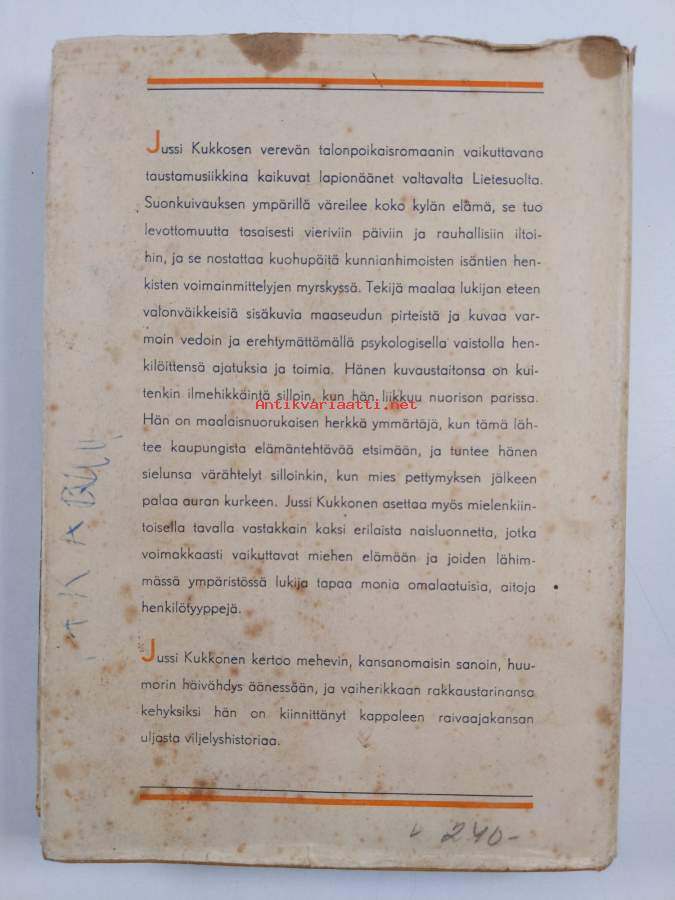 Jussi Kukkosen verevän talonpoikaisromaanin vaikuttavana
taustamusiikkina kaikuvat lapionäänet valtavalta Lietesuolta.
Suonkuivauksen ympärillä väreilee koko kylän elämä, se tuo
levottomuutta tasaisesti vieriviin päiviin ja rauhallisiin iltoi-
hin, ja se nostattaa kuohupäitä kunnianhimoisten isäntien hen-
kisten voimainmittelyjen myrskyssä. Tekijä maalaa lukijan eteen
valonväikkeisiä sisäkuvia maaseudun pirteistä ja kuvaa var-
moin vedoin ja erehtymättömällä psykologisella vaistolla hen-
kilöittensä ajatuksia ja toimia. Hänen kuvaustaitonsa on kui-
tenkin ilmehikkäintä silloin, kun hän liikkuu nuorison parissa.
Antikvariaatti.net
Hän on maalaisnuorukaisen herkkä ymmärtäjä, kun tämä läh-
tee kaupungista elämäntehtävää etsimään, ja tuntee hänen
sielunsa värähtelyt silloinkin, kun mies pettymyksen jälkeen
palaa auran kurkeen. Jussi Kukkonen asettaa myös mielenkiin-
toisella tavalla vastakkain kaksi erilaista naisluonnetta, jotka
voimakkaasti vaikuttavat miehen elämään ja joiden lähim-
mässä ympäristössä lukija tapaa monia omalaatuisia, aitoja
henkilötyyppejä.
Jussi Kukkonen kertoo mehevin, kansanomaisin sanoin, huu-
morin häivähdys äänessään, ja vaiherikkaan rakkaustarinansa
kehyksiksi hän on kiinnittänyt kappaleen raivaajakansan
uljasta viljelyshistoriaa.
240-